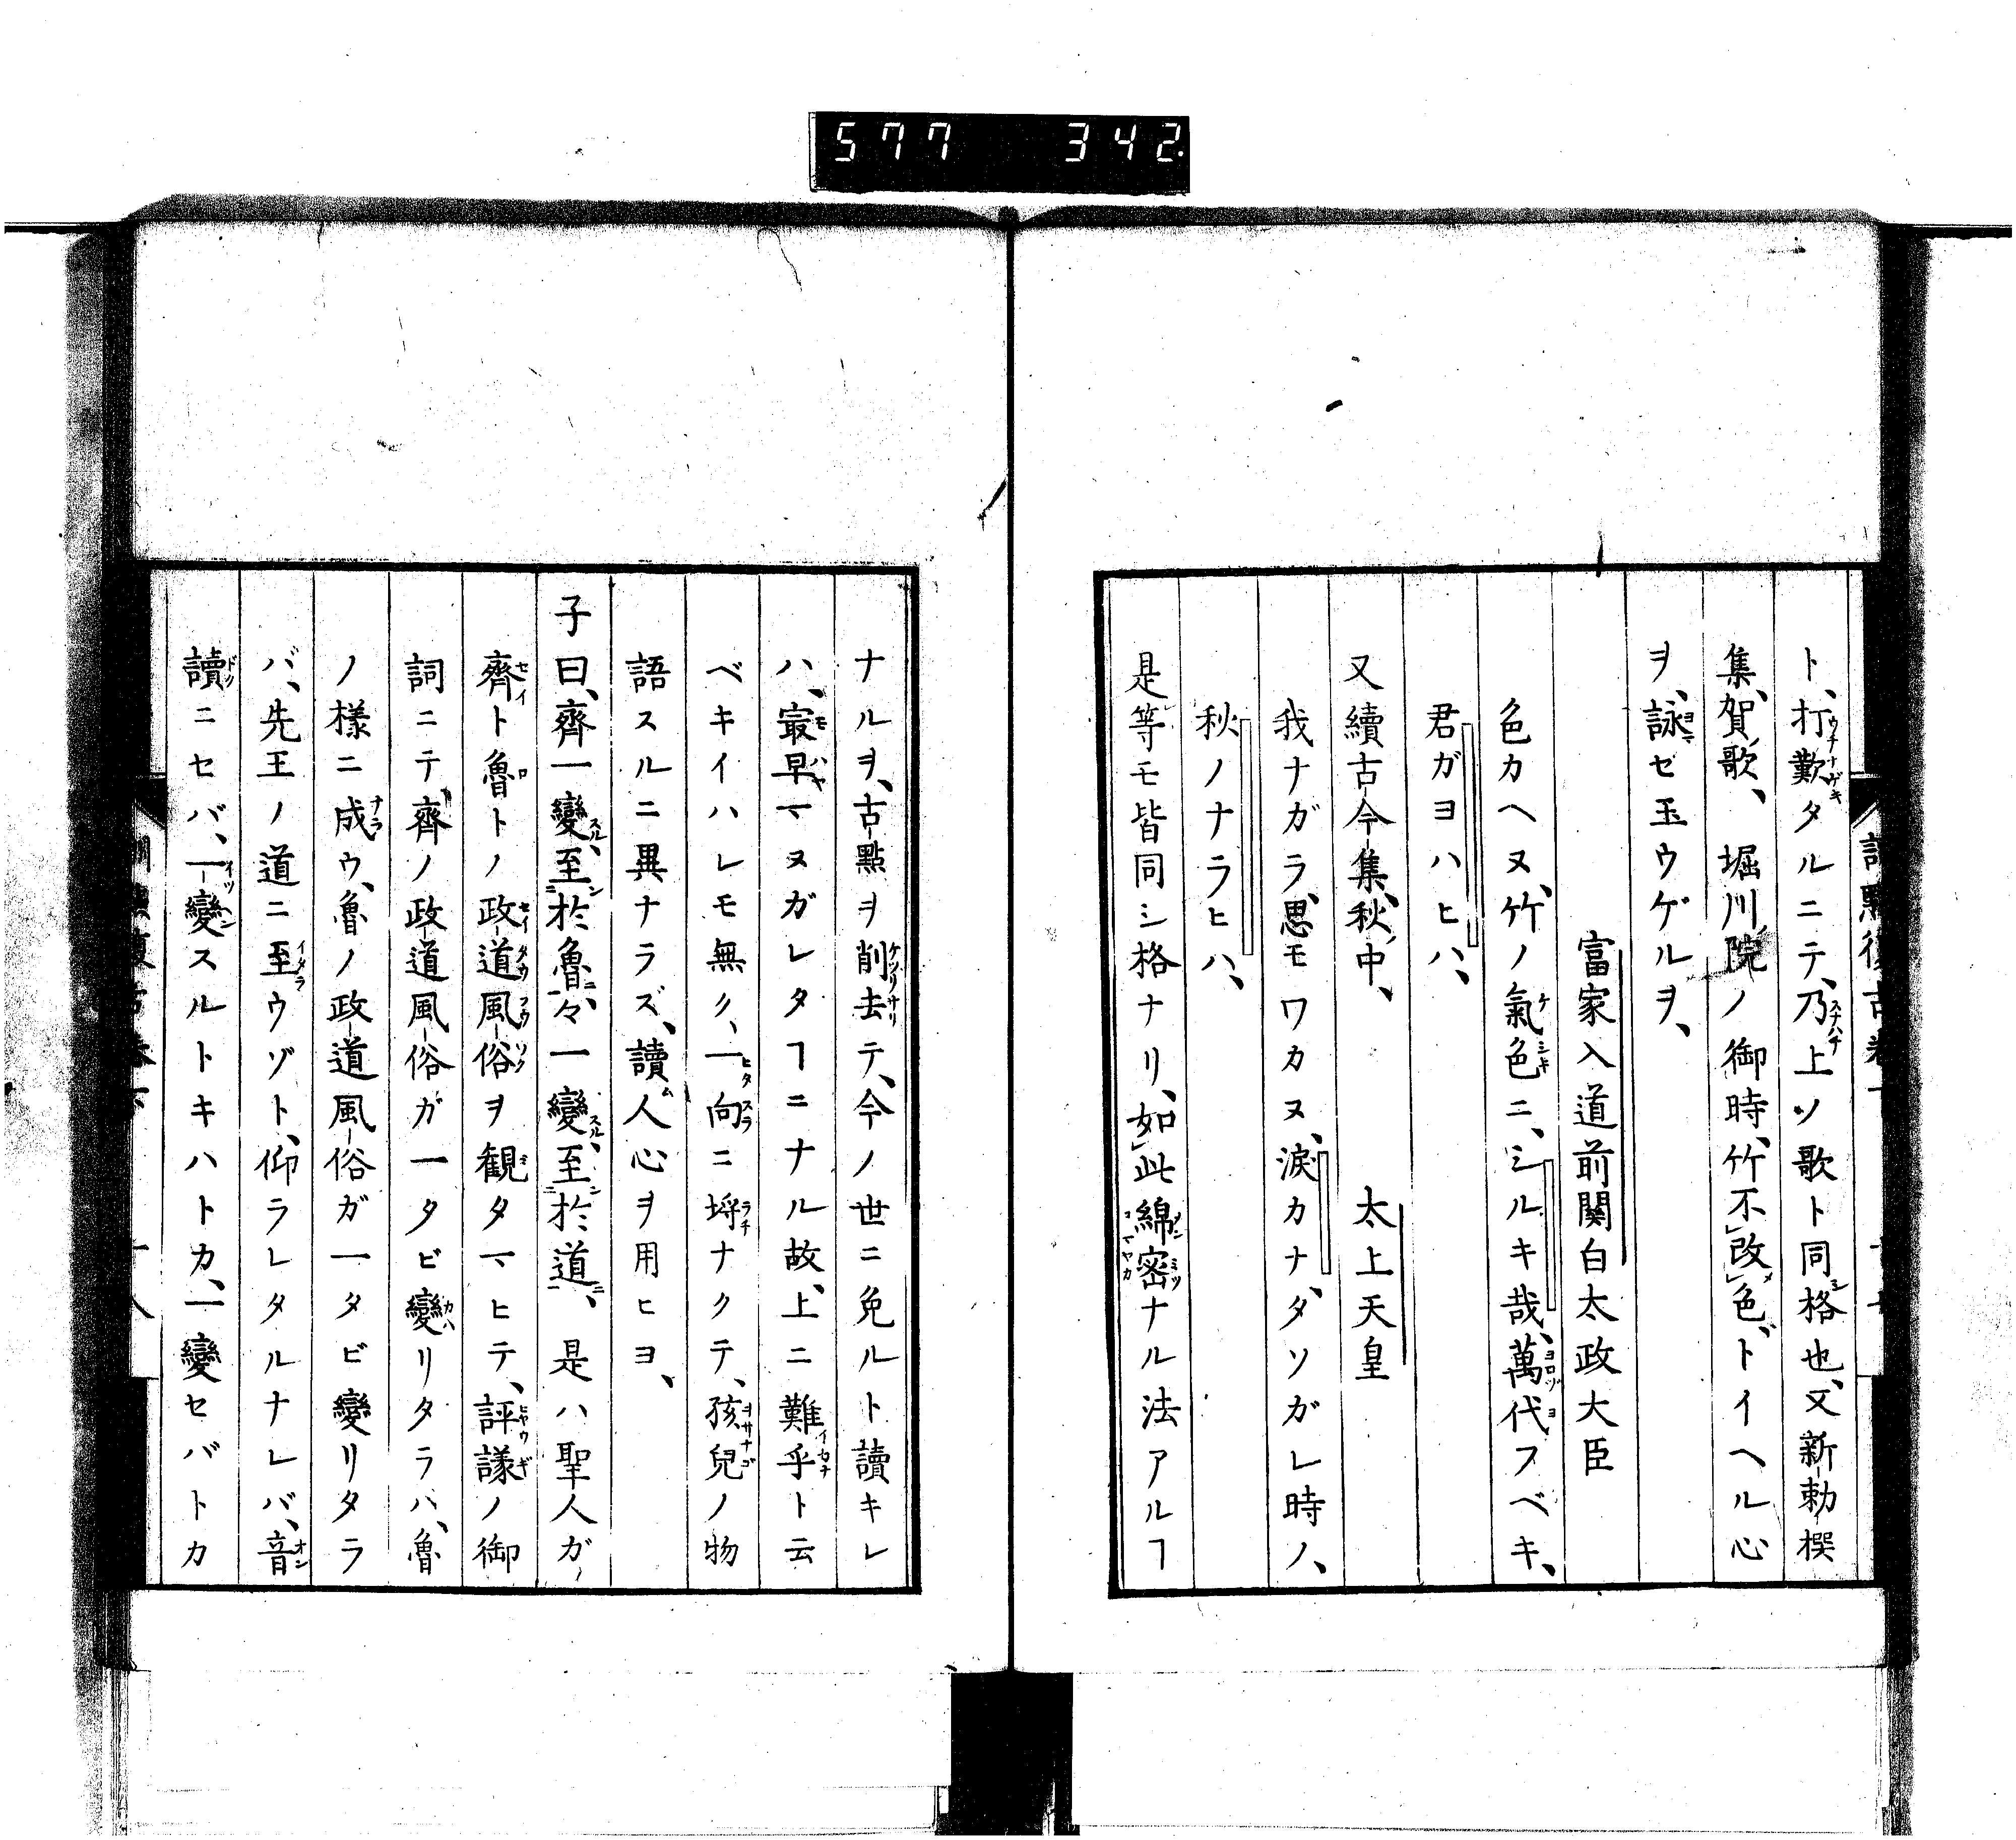 577 342.
ト、打歎タルニテ、乃上ソ歌ト同格也、又新勅撰
集、賀歌、堀川院ノ御時、竹不改色、トイヘル心
ヲ、詠ゼ玉ウゲルヲ、
富家入道前関白太政大臣
色カヘヌ、竹ノ氣色ニ、シルキ哉、萬代フベキ、
君ガヨハヒハ、
又續古今集、秋中、太上天皇
我ナガラ、思モワカヌ、涙カナ、タソガレ時ノ、
秋ノナラヒハ、
是等モ皆同シ格ナリ、如此綿密ナル法アルヿ
ナルヲ、古點ヲ削去テ、今ノ世ニ免ルト讀キレ
ハ、最早マヌガレタヿニナル故、上ニ難乎ト云
ベキイハレモ無ク、一向ニ埒ナクテ、孩兒ノ物
語スルニ異ナラズ、讀人心ヲ用ヒヨ、
子曰、齊一變、至於魯、々一變、至於道、是ハ聖人ガ、
齊ト魯トノ政道風俗ヲ観タマヒテ、評議ノ御
詞ニテ、齊ノ政道風俗ガ一タビ變リタラハ、魯
ノ様ニ成ウ、魯ノ政道風俗ガ一タビ變リタラ
バ、先王ノ道ニ至ウゾト、仰ラレタルナレバ、音
讀ニセバ、一變スルトキハトカ、一變セバトカ